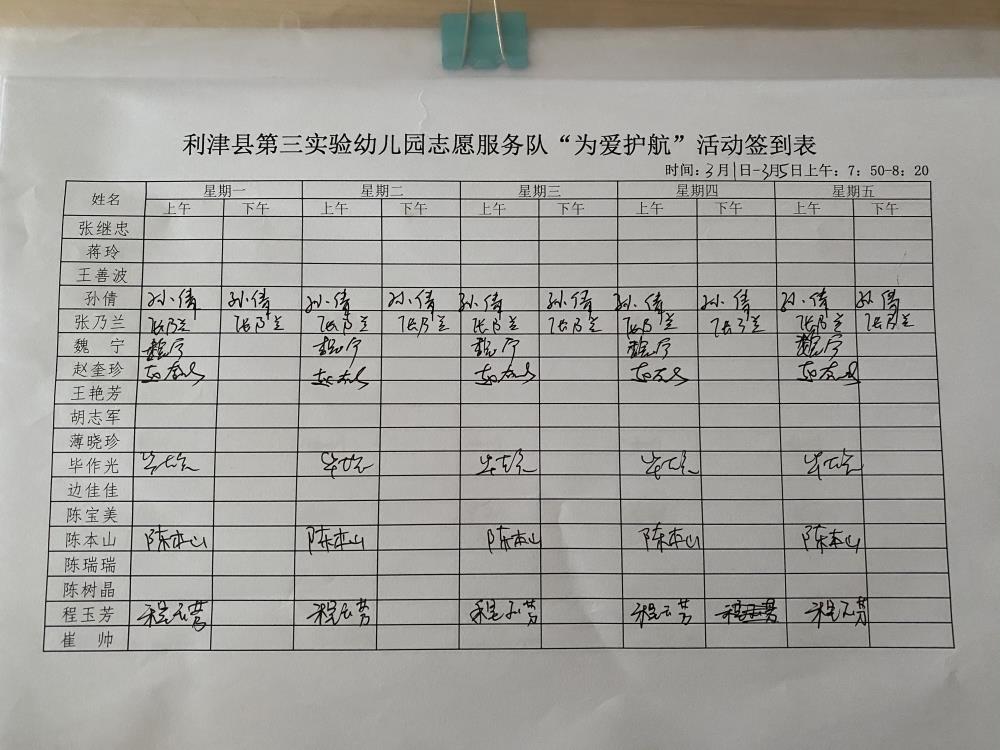 利津县第三实验幼儿园志愿服务队“为爱护航”活动签到表
时间：3月1日-3月5日上午：7：50-8：20
姓名 星期一 星期二 星期三 星期四 星期五
上午 下午 上午 下午 上午 下午 上午 下午 上午 下午
张继忠
蒋玲
王善波
孙倩 孙倩 孙倩 孙倩 孙倩 孙倩 孙倩 孙倩 孙倩 孙倩 孙倩
张乃兰 张乃兰 张乃兰 张乃兰 张乃兰 张乃兰 张乃兰 张乃兰 张乃兰 张乃兰 张乃兰
魏 宁 魏宁 魏宁 魏宁 魏宁 魏宁
赵奎珍
王艳芳
胡志军
薄晓珍
毕作光
边佳佳
陈宝美
陈本山 陈本山 陈本山 陈本山 陈本山 陈本山
陈瑞瑞
陈树晶
程玉芳 程玉芳 程玉芳 程玉芳 程玉芳 程玉芳
崔 帅